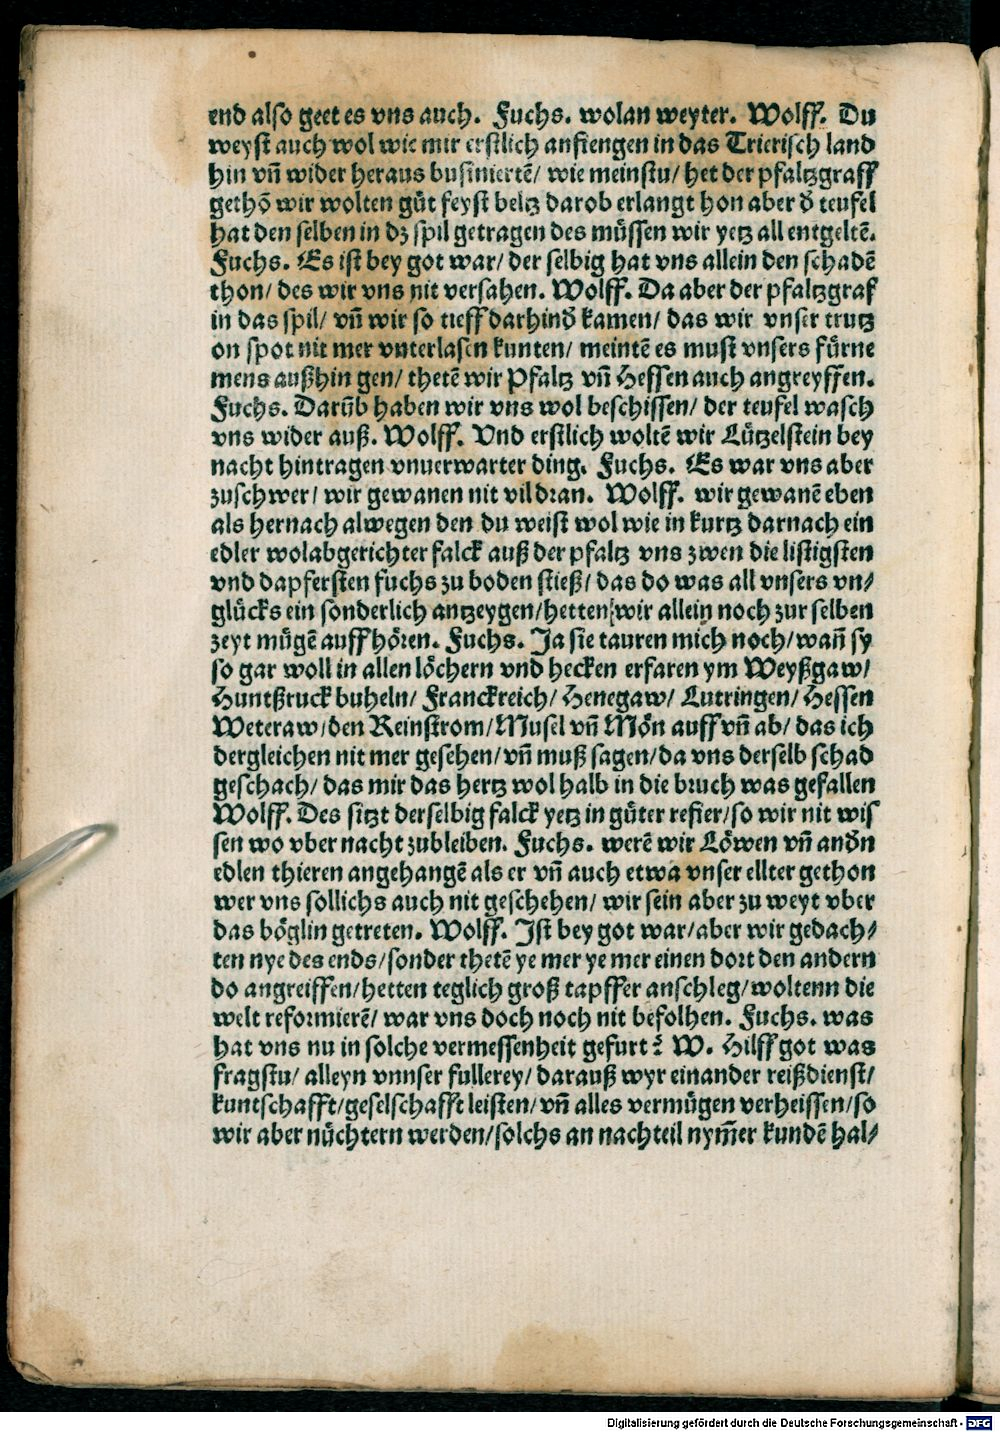 end also geet es vns auch. Fuchs. wolan weyter. Wolff. Du
weyst auch wol wie mir erstlich anfiengen in das Trierisch land
hin vn̄ wider heraus businiertē/ wie meinstu/ het der pfaltzgraff
gethō wir wolten gůt feyst beltz darob erlangt hon aber ð teufel
hat den selben in dz spil getragen des müssen wir yetz all entgeltē.
Fuchs. Es ist bey got war/ der selbig hat vns allein den schadē
thon/ des wir vns nit versahen. Wolff. Da aber der pfaltzgraf
in das spil/ vn̄ wir so tieff darhinð kamen/ das wir vnser trutz
on spot nit mer vnterlasen kunten/ meintē es must vnsers fürne
mens außhin gen/ thetē wir Pfaltz vn̄ Hessen auch angreyffen.
Fuchs. Darūb haben wir vns wol beschissen/ der teufel wasch
vns wider auß. Wolff. Vnd erstlich woltē wir Lützelstein bey
nacht hintragen vnuerwarter ding. Fuchs. Es war vns aber
zuschwer/ wir gewanen nit vil dran. Wolff. wir gewanē eben
als hernach alwegen den du weist wol wie in kurtz darnach ein
edler wolabgerichter falck auß der pfaltz vns zwen die listigsten
vnd dapfersten fuchs zu boden stieß/ das do was all vnsers vn⸗
glücks ein sonderlich antzeygen/ hetten wir allein noch zur selben
zeyt mügē auff hören. Fuchs. Ja sie tauren mich noch/ wan̄ sy
so gar woll in allen löchern vnd hecken erfaren ym Weyßgaw/
Huntßruck buheln/ Franckreich/ Henegaw/ Lutringen/ Hessen
Weteraw/ den Reinstrom/ Musel vn̄ Mön auff vn̄ ab/ das ich
dergleichen nit mer gesehen/ vn̄ muß sagen/ da vns derselb schad
geschach/ das mir das hertz wol halb in die bruch was gefallen
Wolff. Des sitzt derselbig falck yetz in gůter refier/ so wir nit wis
sen wo vber nacht zubleiben. Fuchs. werē wir Löwen vn̄ anðn
edlen thieren angehangē als er vn̄ auch etwa vnser ellter gethon
wer vns sollichs auch nit geschehen/ wir sein aber zu weyt vber
das böglin getreten. Wolff. Ist bey got war/ aber wir gedach⸗
ten nye des ends/ sonder thetē ye mer ye mer einen dort den andern
do angreiffen/ hetten teglich groß tapffer anschleg/ woltenn die
welt reformierē/ war vns doch noch nit befolhen. Fuchs. was
hat vns nu in solche vermessenheit gefurt? W. Hilff got was
fragstu/ alleyn vnnser fullerey/ darauß wyr einander reißdienst/
kuntschafft/ geselschafft leisten/ vn̄ alles vermügen verheissen/ so
wir aber nüchtern werden/ solchs an nachteil nym̄er kundē hal⸗
Digitalisierung gefördert durch die Deutsche Forschungsgemeinschaft - DFG